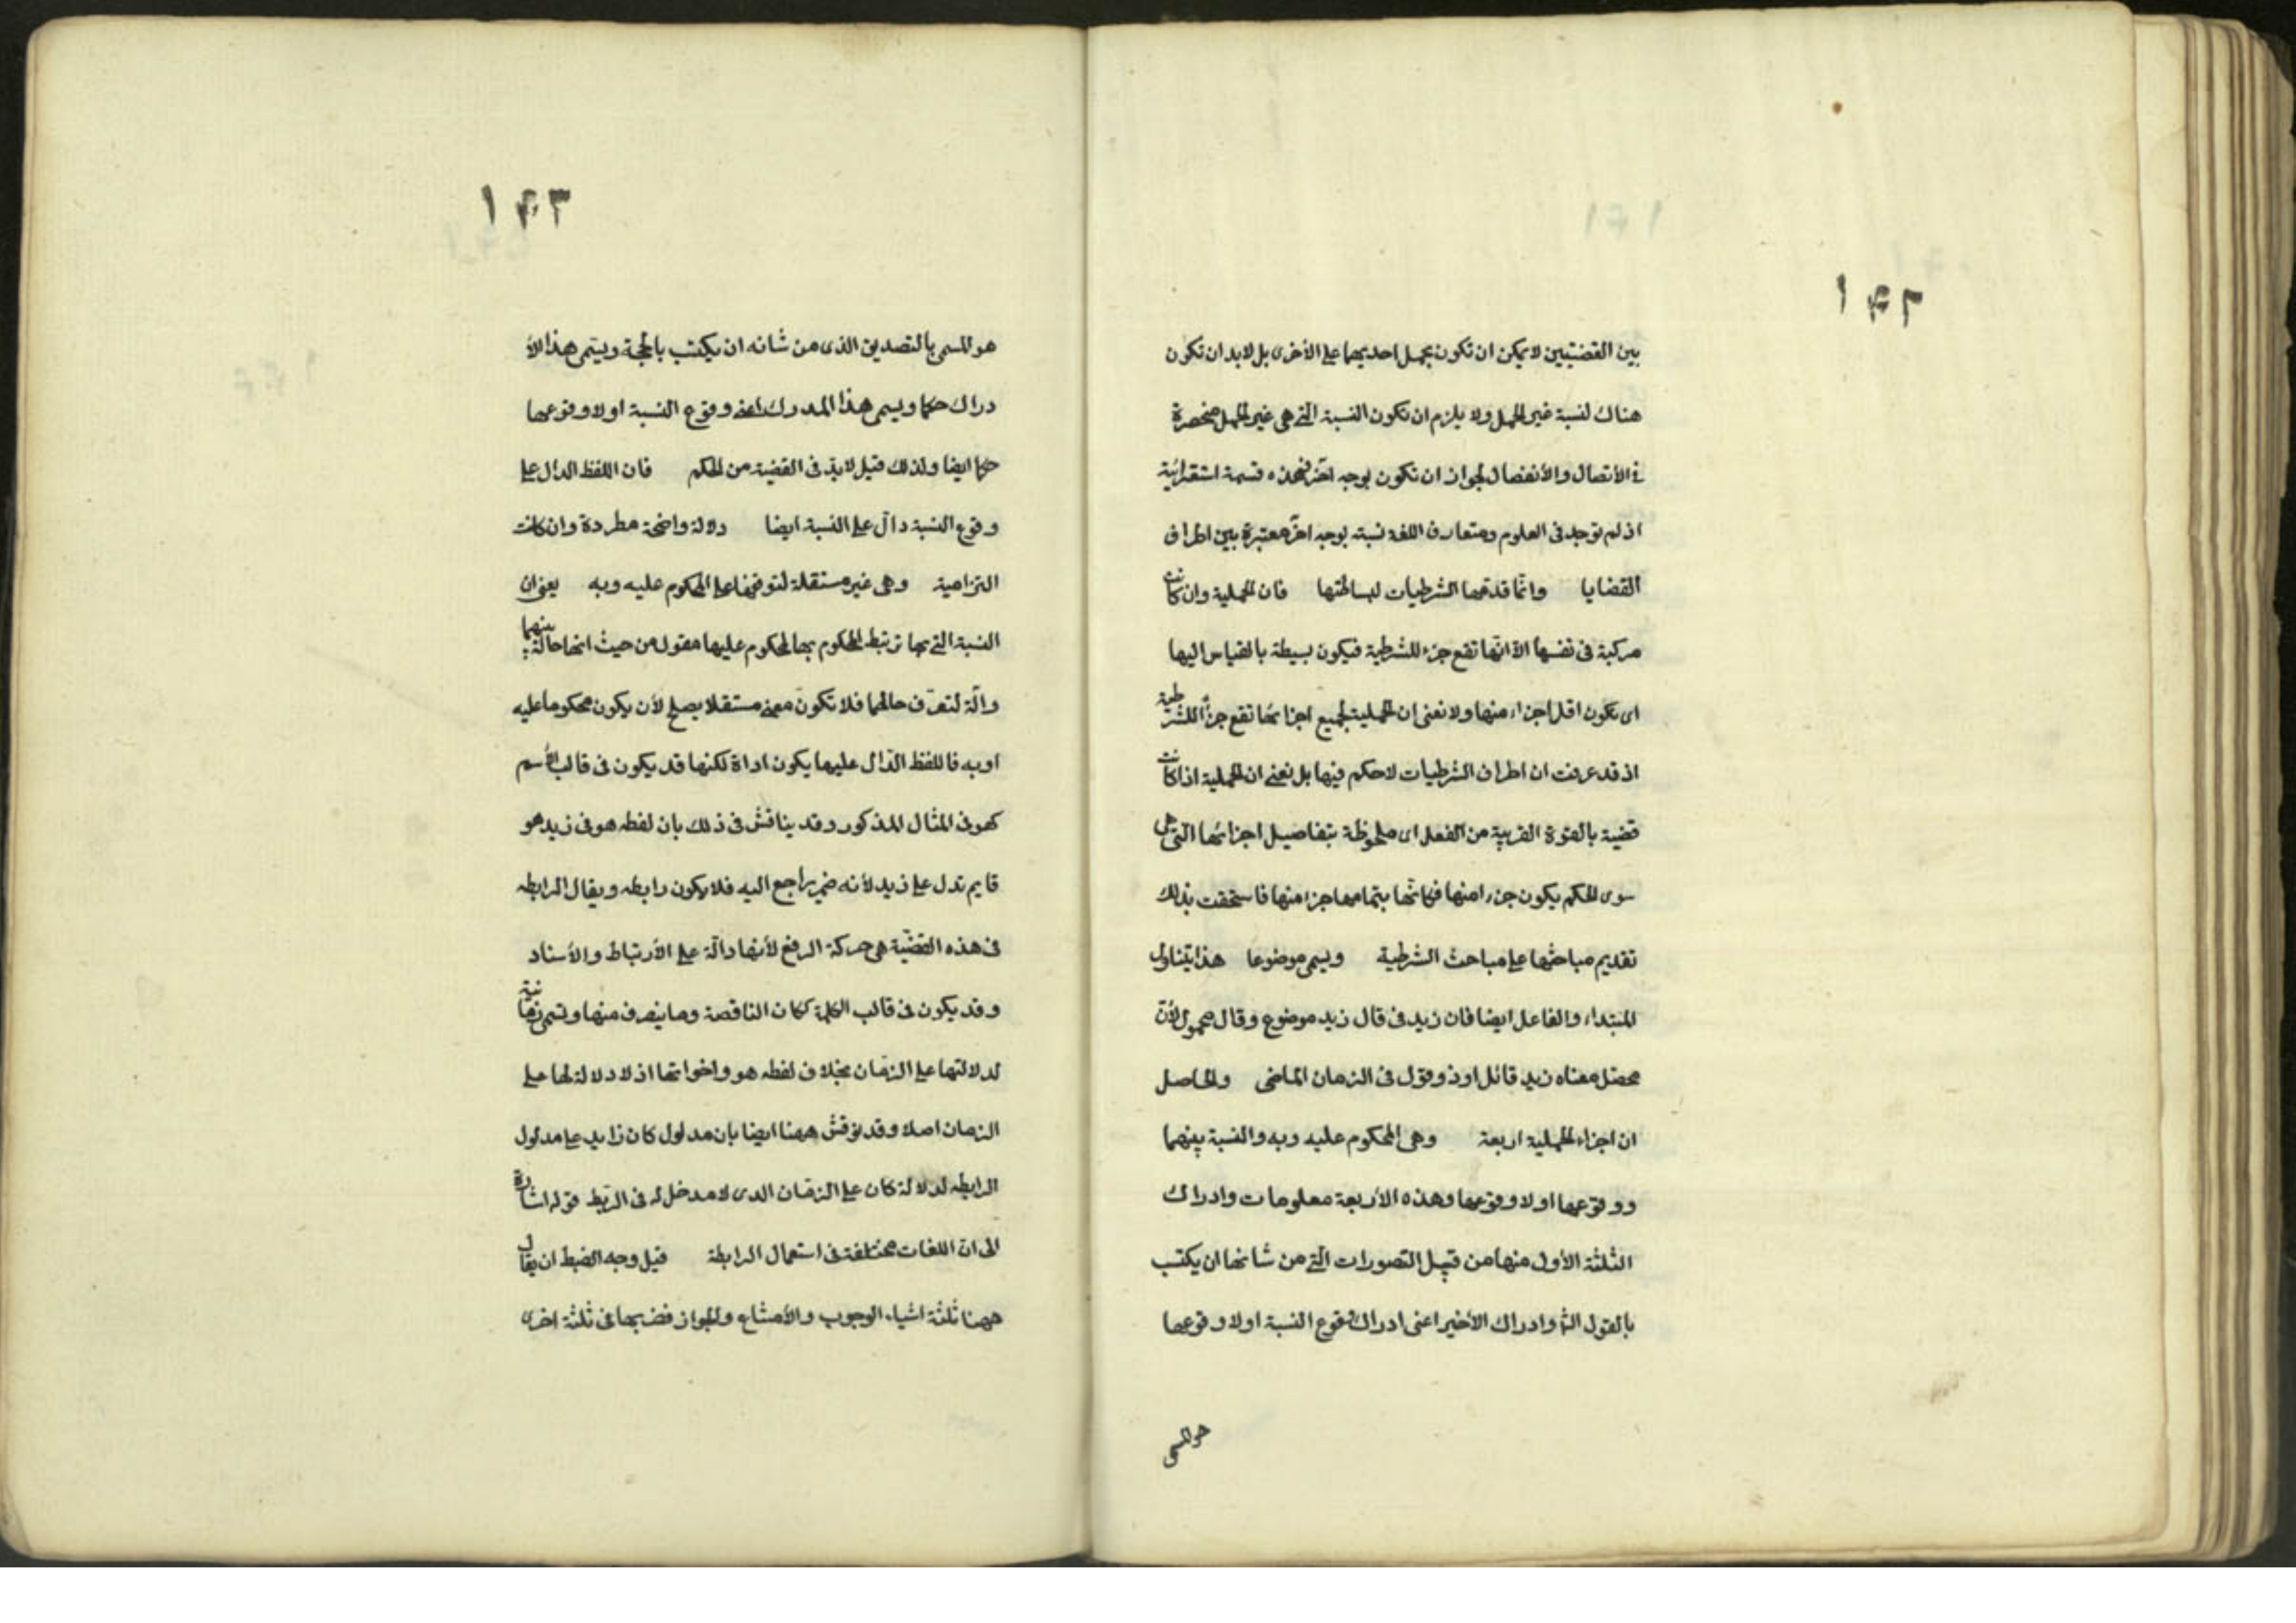 ١٤٢
بين القضيتين لا يمكن ان تكون بحمل احديهما على الأخرى بل لابد ان تكون
هناك نسبة غير الحمل ولا يلزم ان تكون النسبة التى هى غير الحمل منحصرة
فى الأتصال والأنفصال لجواز ان تكون بوجه آخر فهذه قسمة استقرائية
اذ لم توجد فى العلوم ومتعارف اللغة نسبة بوجه آخر معتبرة بين اطراف
القضايا وانما قدمها الشرطيات لبساطتها فان الحملية وان كانت
مركبة فى نفسها الا انها تقع جزء للشرطية فيكون بسيطة بالقياس اليها
اى تكون اقل اجزاء منها ولا نعنى ان الحملية لجميع اجزائها تقع جزأ للشرطية
اذ قد عرفت ان اطراف الشرطيات لاحكم فيها بل نعنى ان الحملية اذا كانت
قضية بالقوة القريبة من الفعل اى ملحوظة بتفاصيل اجزائها التى هى
سوى الحكم يكون جزءا منها فكانها بتمامها جزء منها فاستحقت بذلك
تقديم مباحثها على مباحث الشرطية ويسمى موضوعا هذا يتناول
المبتداء والفاعل ايضا فان زيد فى قال زيد موضوع وقال محمول لأن
محصل معناه زيد قائل او ذو قول فى الزمان الماضى والحاصل
ان اجزاء الحملية اربعة وهى المحكوم عليه وبه والنسبة بينهما
ووقوعها اولا وقوعها وهذه الأربعة معلومات وادراك
الثلثة الأولى منها من قبيل التصورات التى من شانها ان يكتسب
بالقول الشا وادراك الأخير اعنى ادراك وقوع النسبة اولا وقوعها
هو المسمى
١٤٣
هو المسمى بالتصديق الذى من شانه ان يكتسب بالحجة ويسمى هذا الأ
دراك حكما ويسمى هذا المدرك اعنى وقوع النسبة اولا وقوعها
حكما ايضا ولذلك قيل لابد فى القضية من الحكم فان اللفظ الدال على
وقوع النسبة دال على النسبة ايضا دلالة واضحة مطردة وان كانت
التزامية وهى غير مستقلة لتوقفها على المحكوم عليه وبه يعنى ان
النسبة التى بها ترتبط المحكوم بها لمحكوم عليها معقولة من حيث انها حالة بينهما
وآلة لتعرف حالهما فلا تكون معنى مستقلا يصلح لأن يكون محكوما عليه
او به فاللفظ الدال عليها يكون اداة لكنها قد يكون فى قالب الأسم
كهو فى المثال المذكور وقد يناقش فى ذلك بان لفظه هو فى زيد هو
قايم تدل على زيد لأنه ضمير راجع اليه فلا يكون رابطه ويقال الرابطه
فى هذه القضية هى حركة الرفع لأنها دالة على الأرتباط والأسناد
وقد يكون فى قالب الكلمة ككان الناقصة وما ينصرف منها وتسمى زمانية
لدلالتها على الزمان بخلاف لفظه هو واخواتها اذ لا دلالة لها على
الزمان اصلا وقد نوقش ههنا ايضا بان مدلول كان زايد على مدلول
الرابطه لدلالة كان على الزمان الذى لا مدخل له فى الربط قوله اشارة
الى ان اللغات مختلفة فى استعمال الرابطة قيل وجه الضبط ان يقال
ههنا ثلثة اشياء الوجوب والأمتناع والجواز فضربها فى ثلثة اخرى